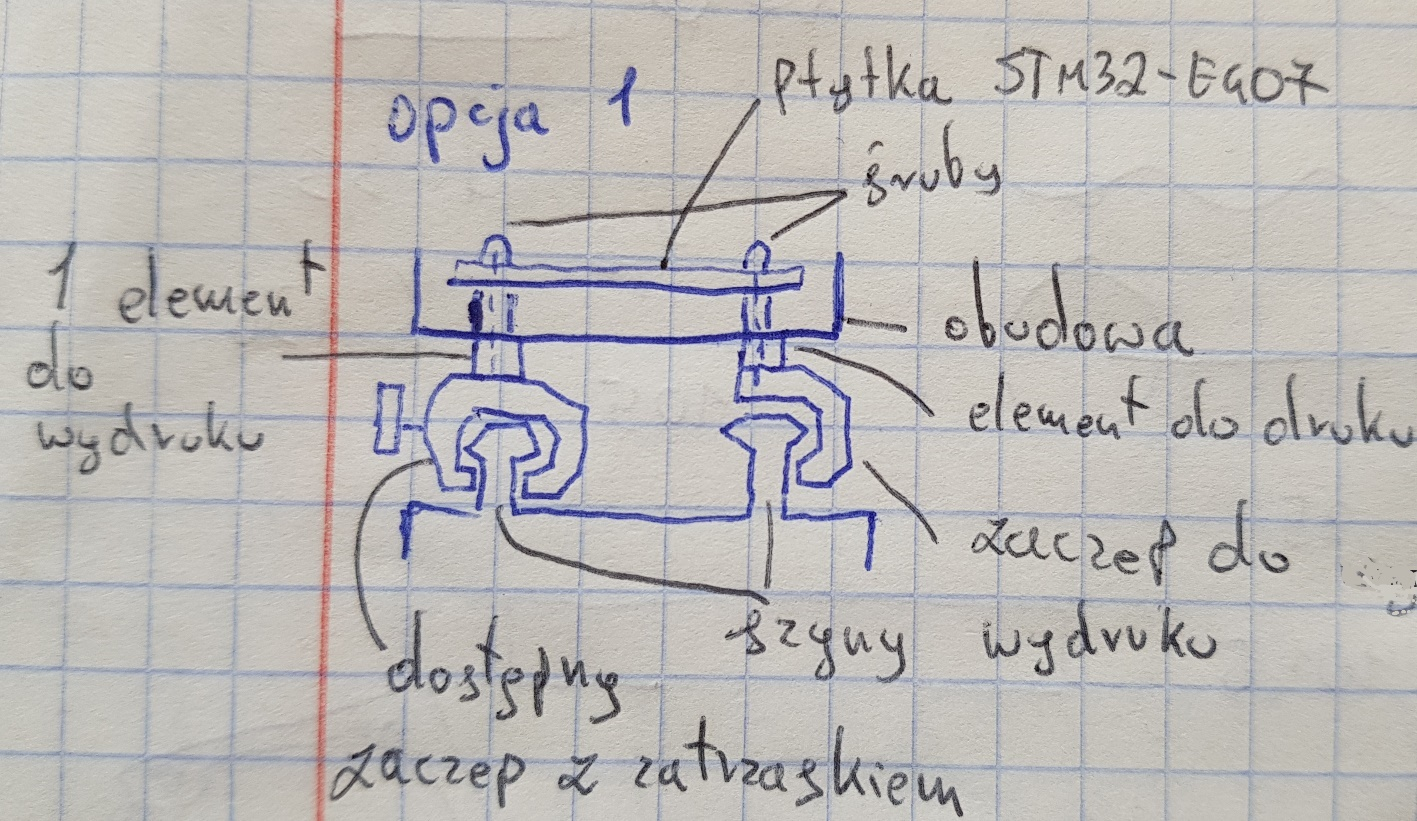 opcja 1
płytka STM32-E407
śruby
1 element
do
wydruku
obudowa
element do druku
zaczep do
wydruku
szyny
dostępny
zaczep z zatrzaskiem